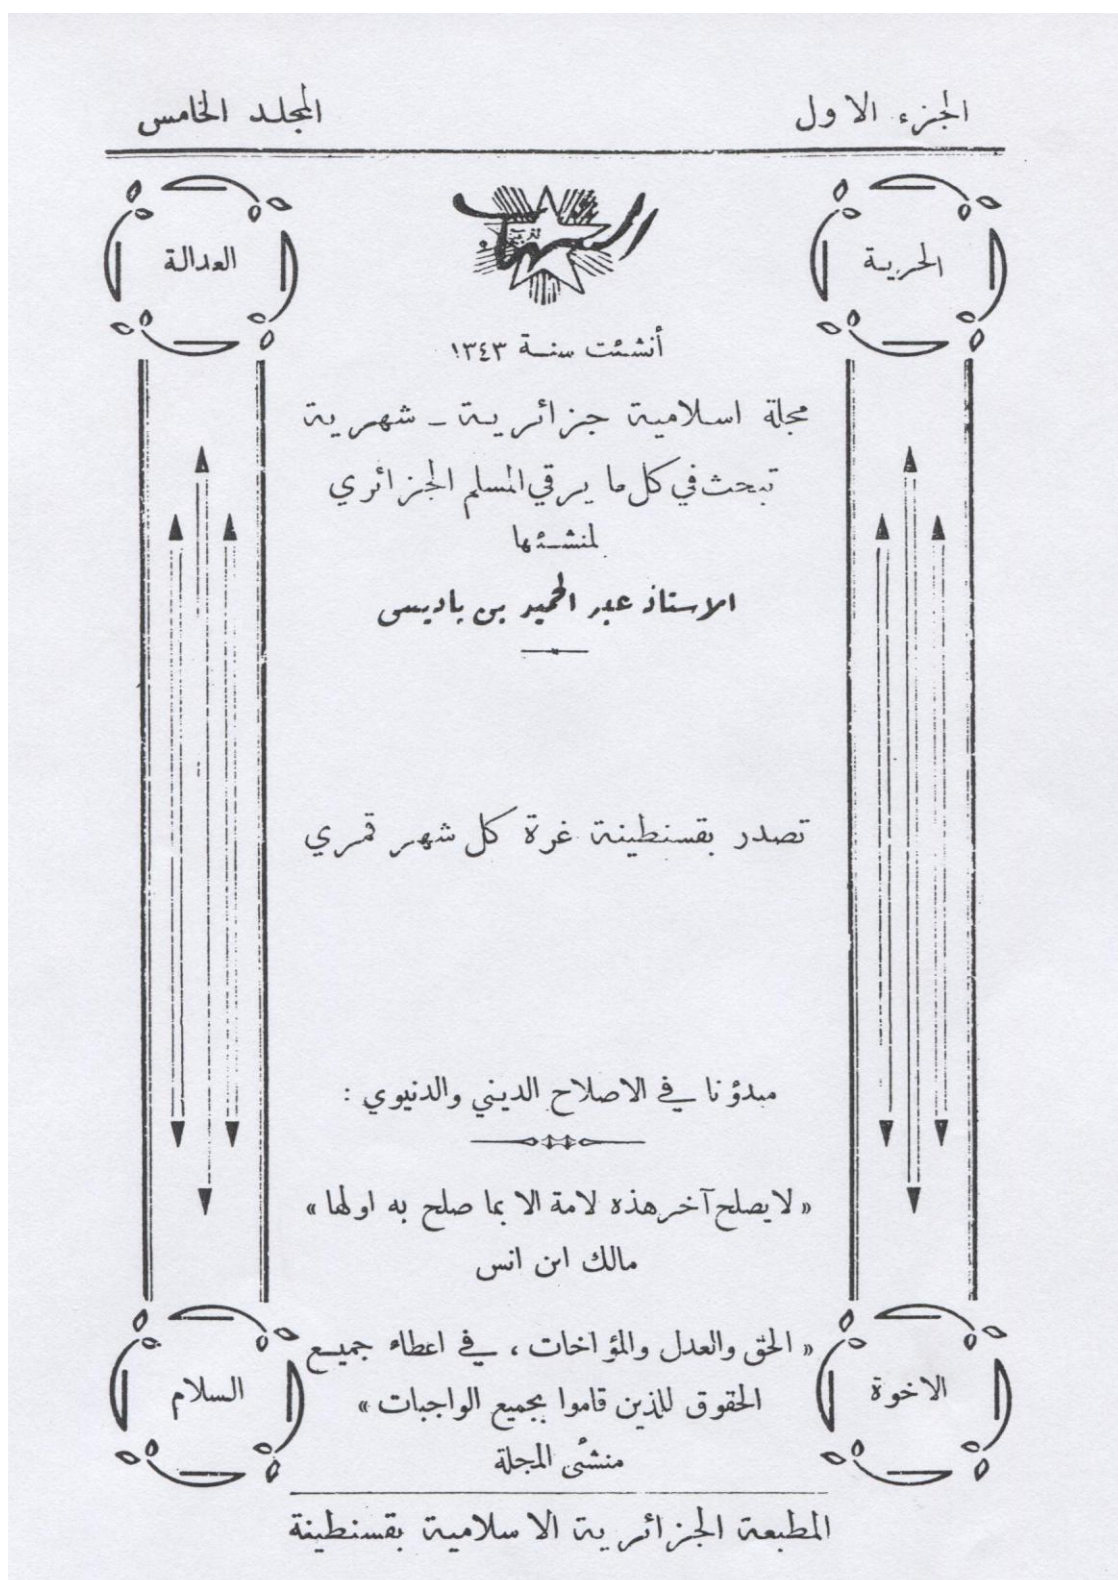 الجزء الاول
المجلد الخامس
الحرية
الشهاب
العدالة
أنشئت سنة ١٣٤٣
مجلة اسلامية جزائرية - شهرية
تبحث في كل ما يرقي المسلم الجزائري
لمنشئها
الاستاذ عبد الحميد بن باديس
تصدر بقسنطينة غرة كل شهر قمري
مبدؤنا في الاصلاح الديني والدنيوي :
« لا يصلح آخر هذه لامة الا بما صلح به اولها »
مالك ابن انس
« الحق والعدل والمؤاخات ، في اعطاء جميع
الحقوق للذين قاموا بجميع الواجبات »
الاخوة
السلام
منشئى المجلة
المطبعة الجزائرية الاسلامية بقسنطينة